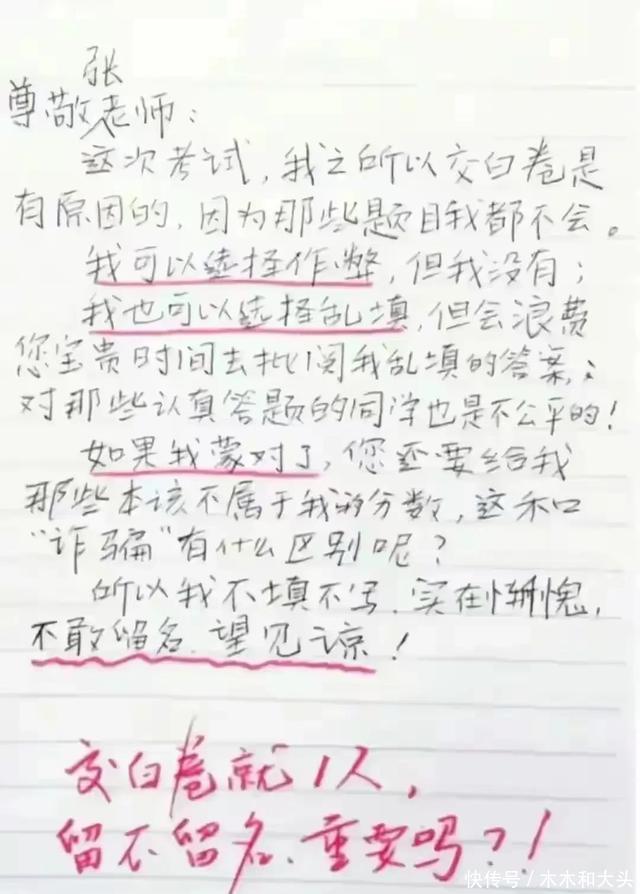 尊敬张老师：
这次考试，我之所以交白卷是
有原因的，因为那些题目我都不会。
我可以选择作弊，但我没有；
我也可以选择乱填，但会浪费
您宝贵时间去批阅我乱填的答案；
对那些认真答题的同学也是不公平的！
如果我蒙对了，您还要给我
那些本该不属于我的分数，这和
“诈骗”有什么区别呢？
所以我不填不写．实在惭愧，
不敢留名．望见谅！
交白卷就1人，
留不留名、重要吗？！
快传号／木木和大头